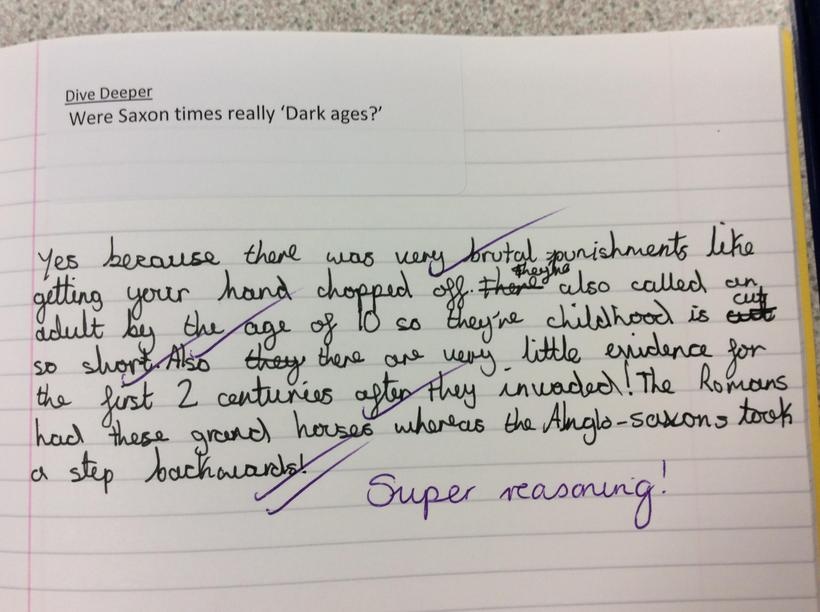 Dive Deeper
Were Saxon times really ‘Dark ages?’
Yes because there was very brutal punishments like
getting your hand chopped off. there they're also called an
adult by the age of 10 so they're childhood is cut cut
so short. Also they there are very little evidence for
the first 2 centuries after they invaded! The Romans
had these grand houses whereas the Anglo-saxons took
a step backwards!
Super reasoning!